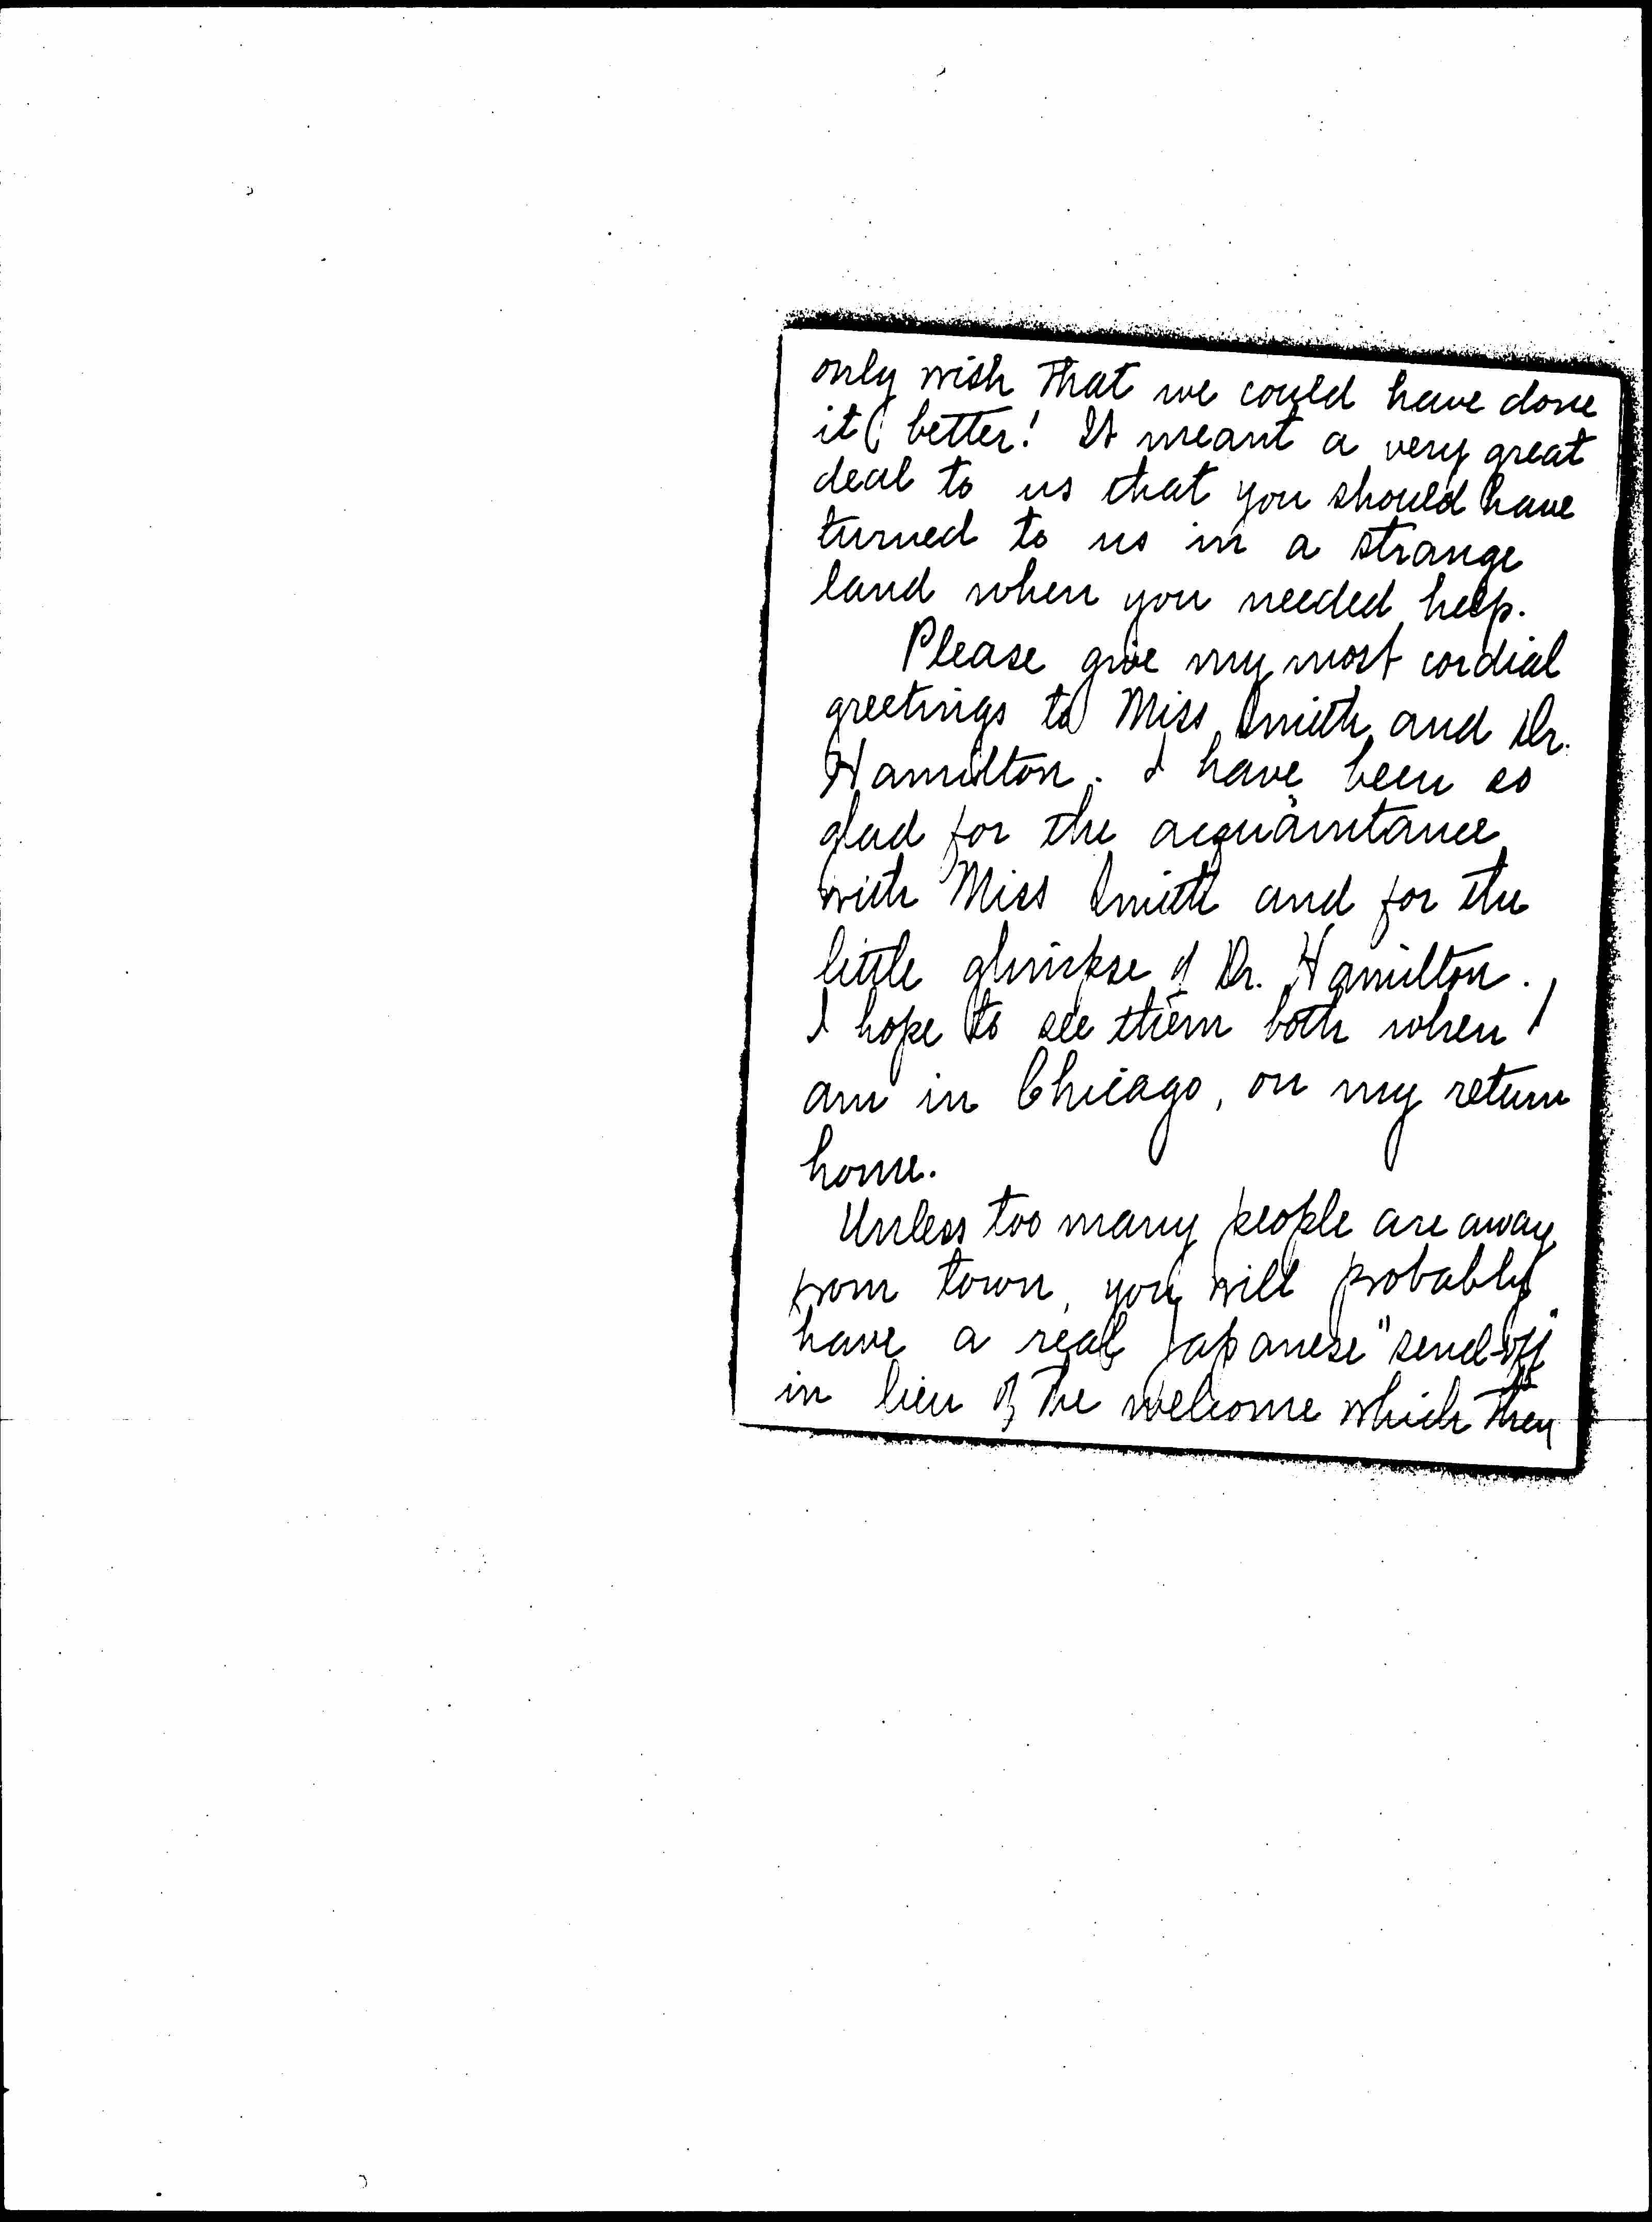 only wish that we could have done
it better! It meant a very great
deal to us that you should have
turned to us in a strange
land when you needed help.
Please give my most cordial
greetings to Miss Smith and Dr.
Hamilton. I have been so
glad for the acquaintance
with Miss Smith and for the
little glimpse of Dr. Hamilton.
I hope to see them both when I
am in Chicago, on my return
home.
Unless too many people are away
from town, you will probably
have a real Japanese "send-off"
in lieu of the welcome which they